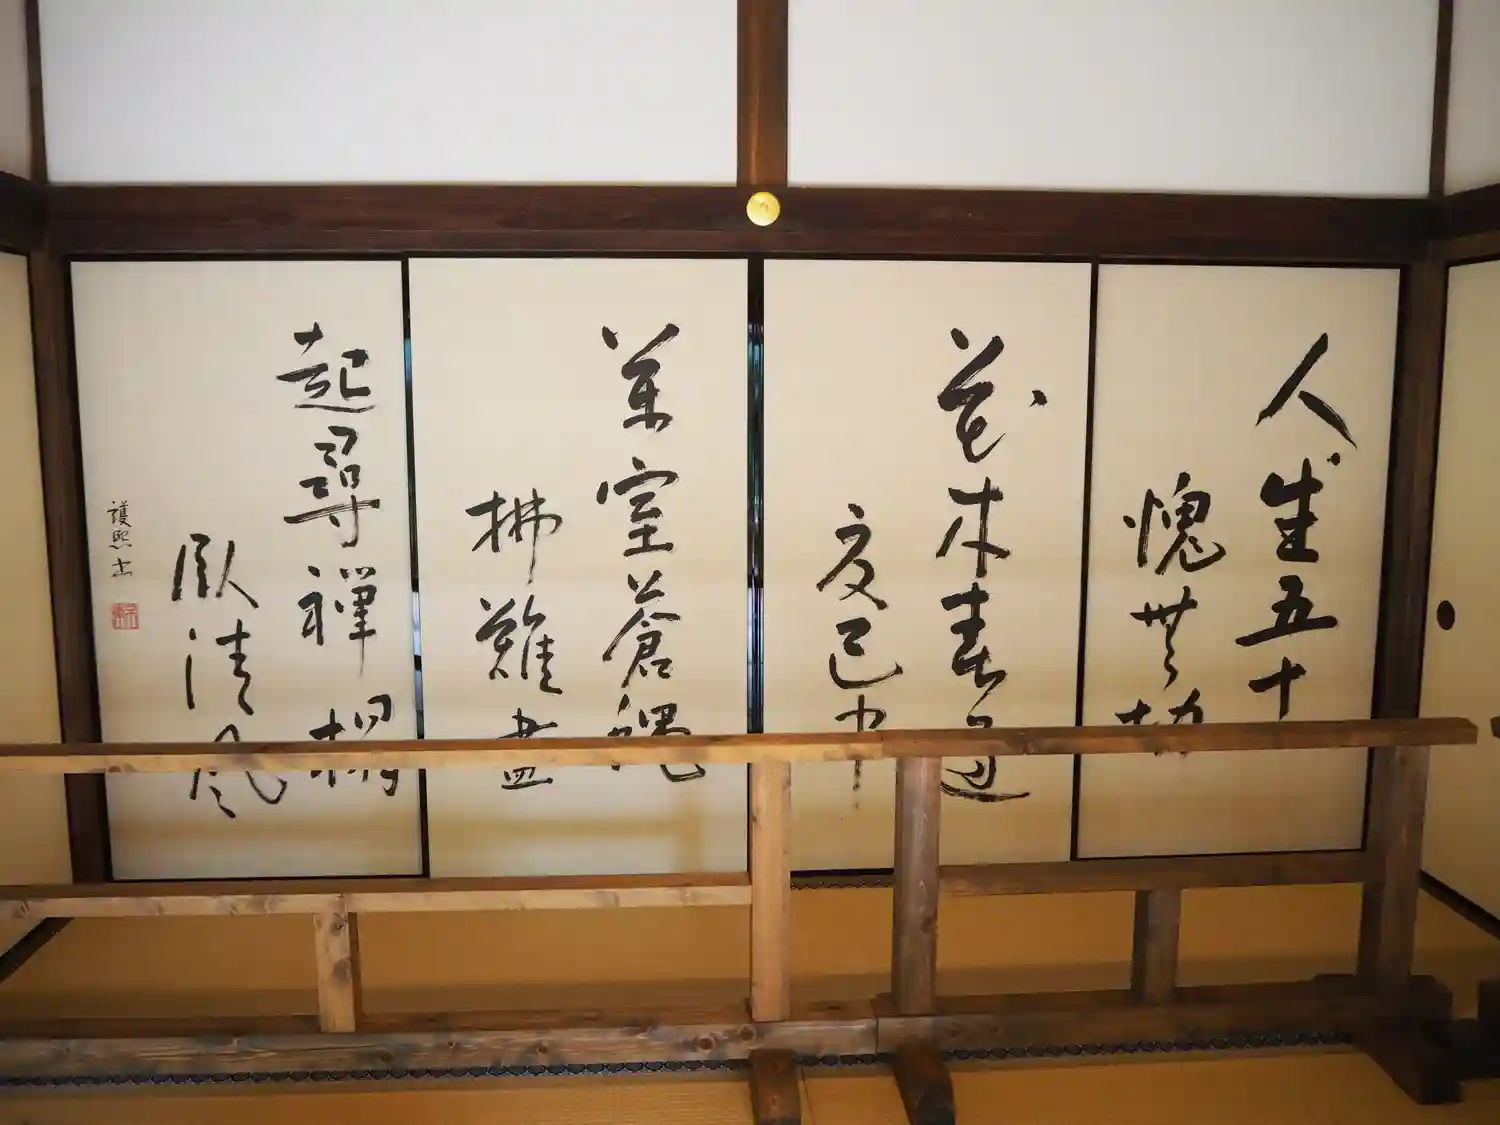 人生五十
愧無功
花木春過
夏已中
満室蒼蠅
拂難盡
起尋禪榻
臥清風
護熙書